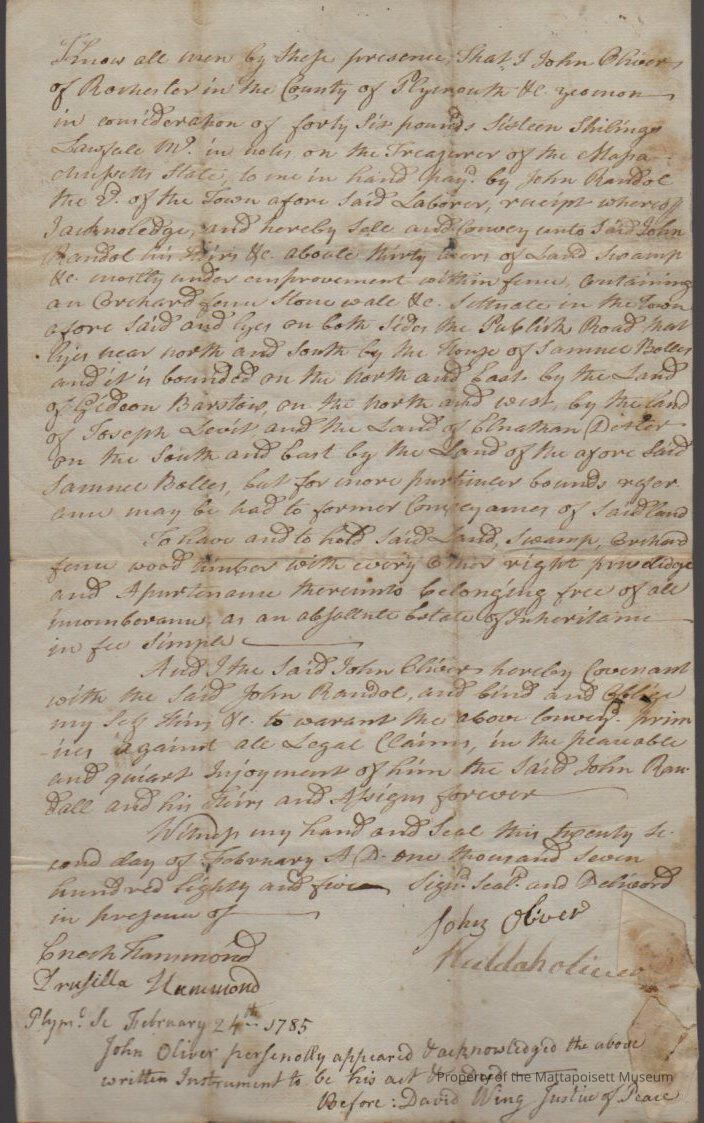 Know all men by these presence, that I John Oliver
of Rochester in the County of Plymouth &c. yeomon
in consideration of forty six pounds sixteen Shilings
Lawfule My. in notes on the Treasurer of the Massa-
chusetts State, to me in hand Payd. by John Randol
the 2d. of the Town afore said Laborer, receipt whereof
I acknoledge, and hereby Sele and Convey unto Said John
Randol his Heirs &c. aboute thirty acers of Land Swamp
&c. mostly under emprovement within fence, Containing
an Orchard fence Stone wale &c. Situate in the Town
afore Said and lyes on both sides the Publick Road that
lyes near north and South by the House of Samuel Bolles
and it is bounded on the north and East by the Land
of Gideon Barstow, on the north and west, by the land
of Joseph and the Land of Elnathan Dexter
on the South and East by the Land of the afore Said
Samuel Bolles, but for more purticuler bounds refer-
ance may be had to former Conveyances of Said land
To have and to hold Said Land, Swamp, Orchard
fence wood timber with every other right priveledge
and Apurtenance thereunto belonging free of all
incomberance, as an absollute Estate of Inheritance
in fee Simple
And I the Said John Oliver hereby Covenant
with the Said John Randol, and bind and Oblige
my Self Heirs &c. to warant the above Conveyd. prim-
-ises against all Legal Claims, in the peaceable
and quiart Injoyment of him the Said John Ran-
dall and his Heirs and Assigns forever
Witness my hand and Seal this twenty Se-
cond day of February A.D. one thousand Seven
hundred Eighty and five Signd Seald. and Delivord
in presence of
John Oliver
Enoch Hammond
Huldah oliver
Drusilla Hammond
Plymo. Sc February 24th 1785
John Oliver personolly appeared & acknowledged the above
written Instrument to be his act & deed
Before: David Wing Justice of Peace
Property of the Mattapoisett Museum